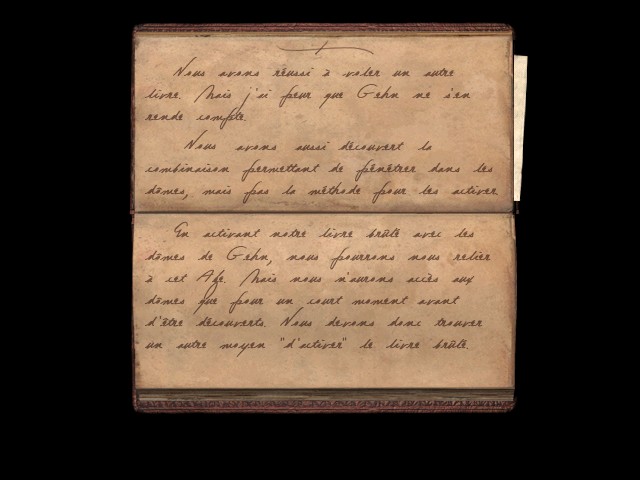 Nous avons réussi à voler un autre
livre. Mais j'ai peur que Gehn ne s'en
rende compte.
Nous avons aussi découvert la
combinaison permettant de pénétrer dans les
dômes, mais pas la méthode pour les activer
En activant notre livre brûlé avec les
dômes de Gehn, nous pourrons nous relier
à cet Age. Mais nous n'aurons accès aux
dômes que pour un court moment avant
d'être découverts. Nous devons donc trouver
un autre moyen "d'activer" le livre brûlé.